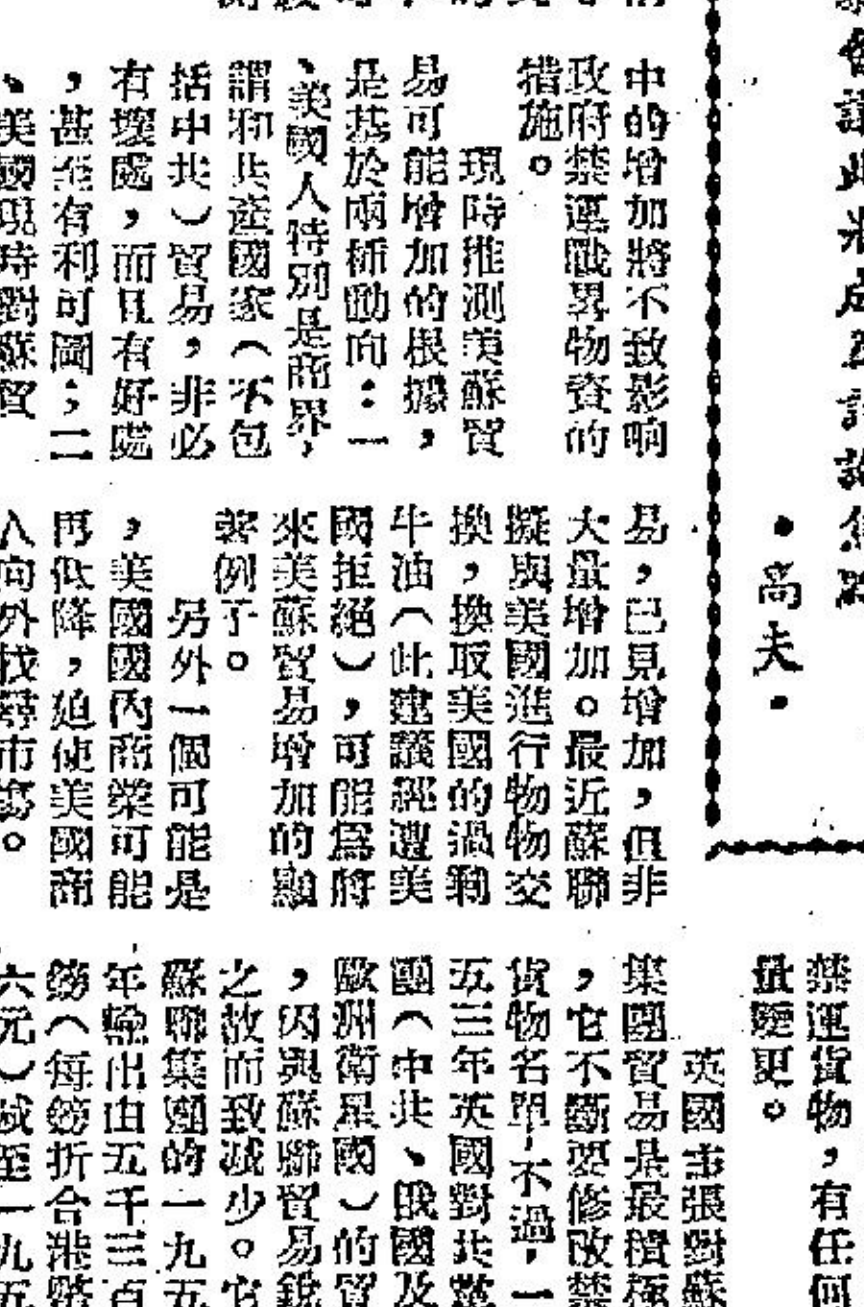 會議此將成為討論焦點
•高夫•
中的增加將不致影响
政府禁運戰畧物資的
措施。
現時推測美蘇貿
易可能增加的根據,
是基於兩種動向:一
、美國人特別是商界,
謂和共產國家(不包
括中共)貿易,非必
有壞處,而且有好處
,甚至有利可圖;二
、美國現時對蘇貿
易,已見增加,但非
大量增加。最近蘇聯
擬與美國進行物物交
換,換取美國的過剩
牛油(此建議經遭美
國拒絕),可能為將
來美蘇貿易增加的顯
著例子。
另外一個可能是
,美國國內商業可能
再低降,迫使美國商
人向外找尋市塲。
禁運貨物,有任何
量變更。
英國主張對蘇
集團貿易是最積極
,它不斷要修改禁
貨物名單,不過,一
五三年英國對共黨
團(中共、俄國及
歐洲衛星國)的貿
,因與蘇聯貿易銳
之故而致減少。它
蘇聯集團的一九五
年輸出由五千三百
鎊(每鎊折合港幣
六元)減至一九五